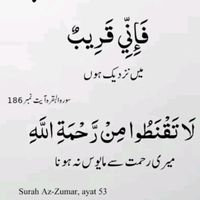 فَإِنِّي قَرِيبٌ
میں نزدیک ہوں
سورہ البقرہ آیت نمبر 186
لَا تَقْنَطُوا مِنْ رَّحْمَةِ اللَّهِ
میری رحمت سے مایوس نہ ہونا
Surah Az-Zumar, ayat 53